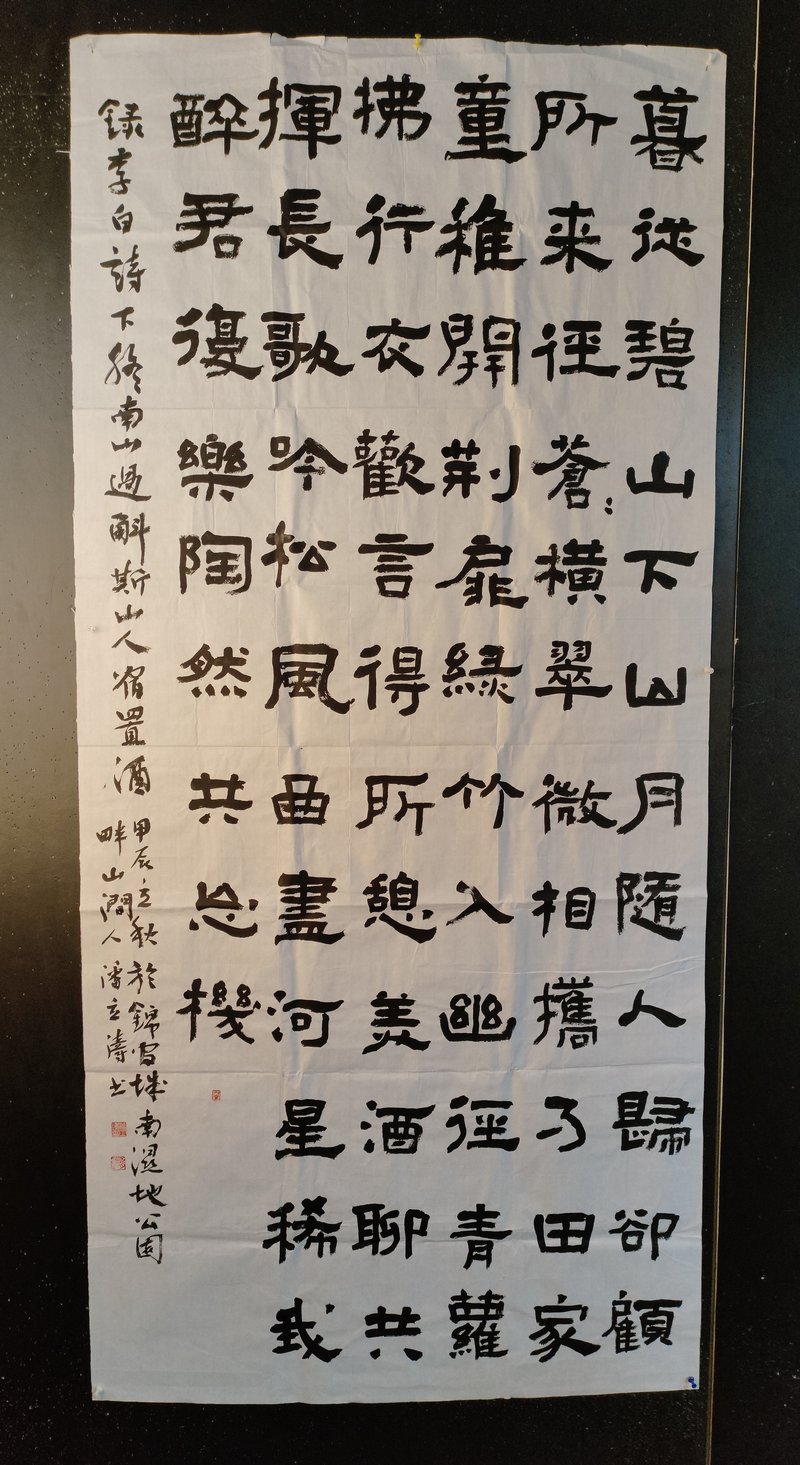 暮從碧山下山月隨人歸卻顧
所来徑蒼〻橫翠微相攜乃田家
童稚開荆扉緑竹入幽徑青蘿
拂行衣歡言得所憩美酒聊共
揮長歌吟松風曲盡河星稀我
醉君復樂陶然共忘機
録李白詩下終南山過斛斯山人宿置酒
甲辰立秋於錦官城南濕地公園
畔山澗人潘立濤书